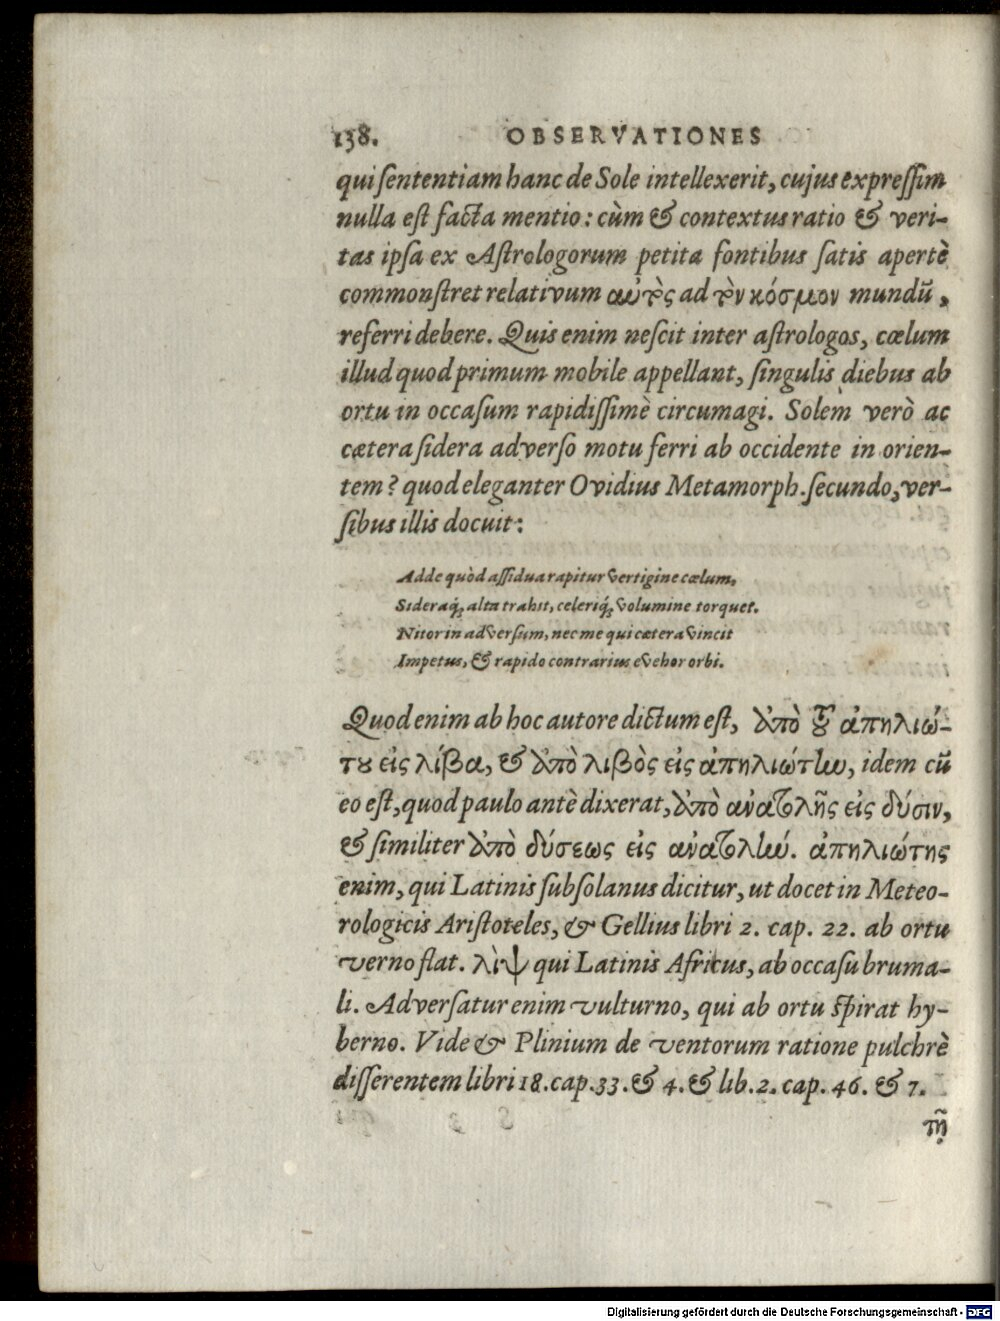 138. OBSERVATIONES
qui sententiam hanc de Sole intellexerit, cujus expressim
nulla est facta mentio: cùm & contextus ratio & veri-
tas ipsa ex Astrologorum petita fontibus satis apertè
commonstret relativum αὐτὸς ad τὸν κόσμον mundũ,
referri debere. Quis enim nescit inter astrologos, cœlum
illud quod primum mobile appellant, singulis diebus ab
ortu in occasum rapidissimè circumagi. Solem verò ac
cætera sidera adverso motu ferri ab occidente in orien-
tem? quod eleganter Ovidius Metamorph. secundo, ver-
sibus illis docuit:
Adde quòd assidua rapitur vertigine cœlum,
Sideraq́; alta trahit, celeriq́; volumine torquet.
Nitor in adversum, nec me qui cætera vincit
Impetus, & rapido contrarius evehor orbi.
Quod enim ab hoc autore dictum est, ἀπὸ τοῦ ἀπηλιώ-
του εἰς λίβα, & ἀπὸ λιβὸς εἰς ἀπηλιώτην, idem cũ
eo est, quod paulo antè dixerat, ἀπὸ ἀνατολῆς εἰς δύσιν,
& similiter ἀπὸ δύσεως εἰς ἀνατολήν. ἀπηλιώτης
enim, qui Latinis subsolanus dicitur, ut docet in Meteo-
rologicis Aristoteles, & Gellius libri 2. cap. 22. ab ortu
verno flat. λὶψ qui Latinis Africus, ab occasu bruma-
li. Adversatur enim vulturno, qui ab ortu spirat hy-
berno. Vide & Plinium de ventorum ratione pulchrè
disserentem libri 18. cap. 33. & 4. & lib. 2. cap. 46. & 7.
τῇ
Digitalisierung gefördert durch die Deutsche Forschungsgemeinschaft - DFG